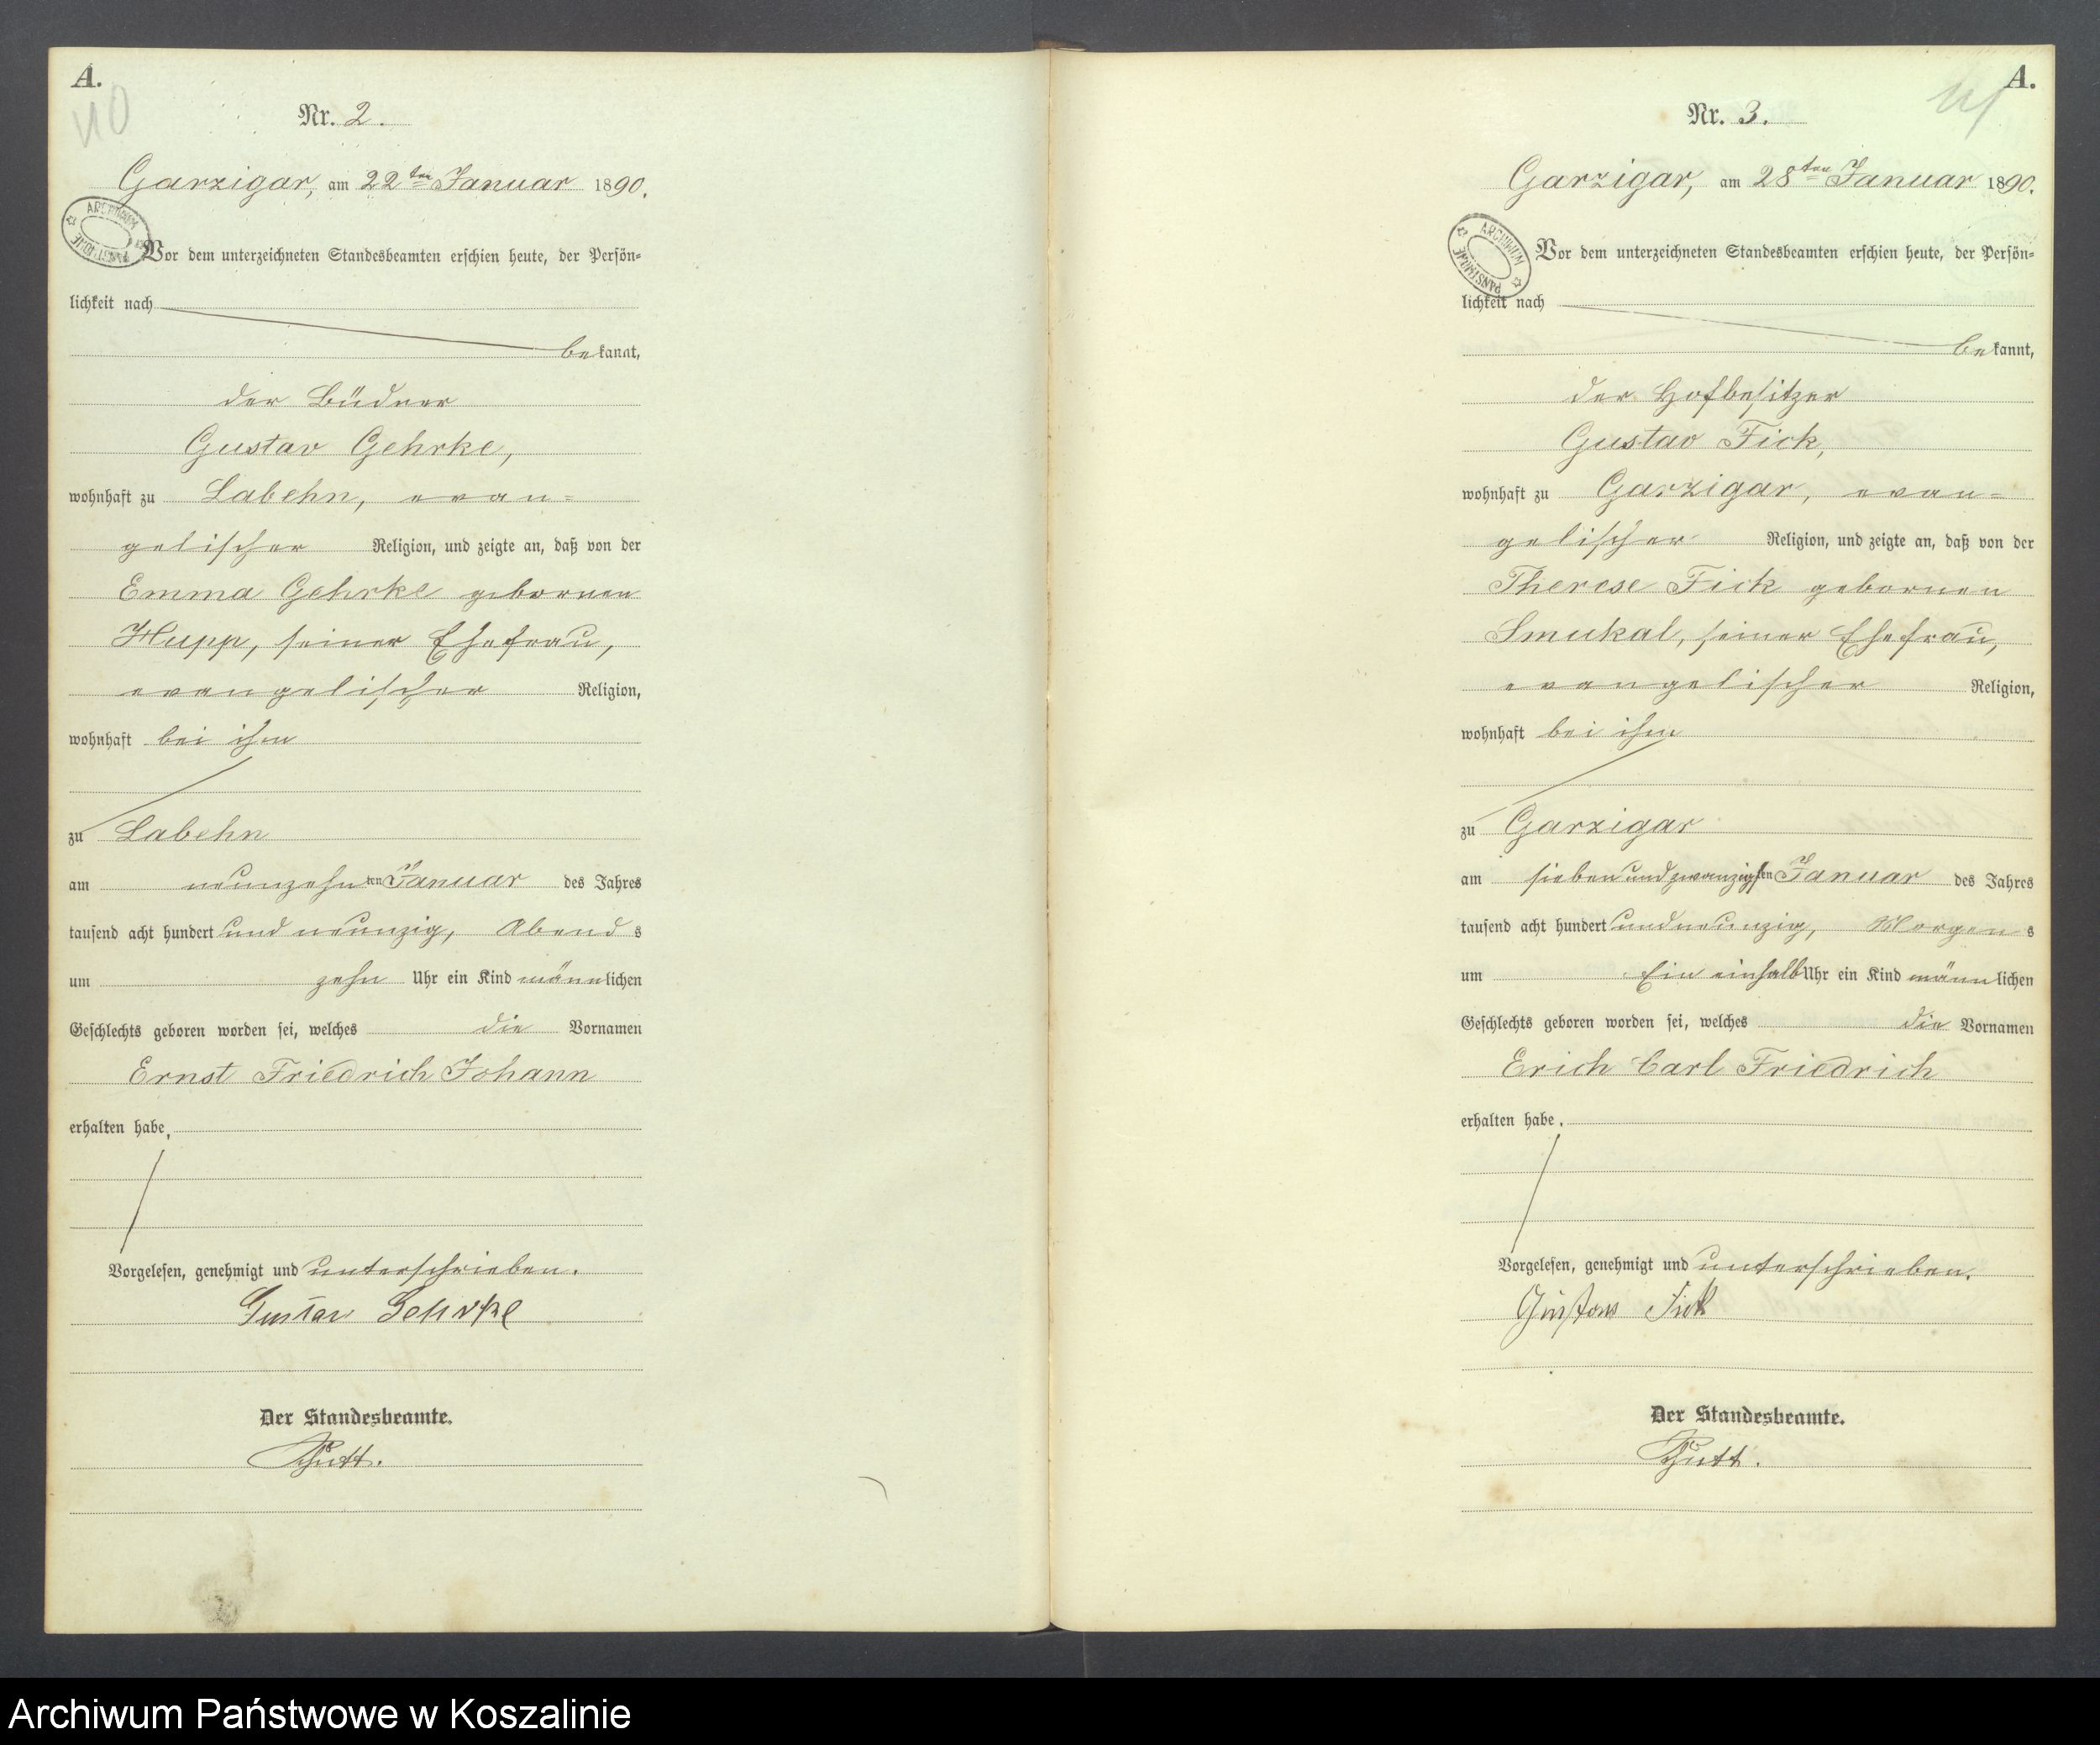 A.
110
Nr. 2.
Garzigar, am 22ten Januar 1890.
ARCHIWUM PAŃSTWOWE
Vor dem unterzeichneten Standesbeamten erschien heute, der Persön-
lichkeit nach
bekannt,
der Büdner
Gustav Gehrke,
wohnhaft zu Labehn, evan-
gelischer Religion, und zeigte an, daß von der
Emma Gehrke gebornen
Hupp, seiner Ehefrau,
evangelischer Religion,
wohnhaft bei ihm
zu Labehn
am neunzehnten Januar des Jahres
tausend acht hundert und neunzig, Abends
um zehn Uhr ein Kind männlichen
Geschlechts geboren worden sei, welches die Vornamen
Ernst Friedrich Johann
erhalten habe.
Vorgelesen, genehmigt und unterschrieben.
Gustav Gehrke
Der Standesbeamte.
A.
Nr. 3.
Garzigar, am 28ten Januar 1890.
ARCHIWUM PAŃSTWOWE
Vor dem unterzeichneten Standesbeamten erschien heute, der Persön-
lichkeit nach
bekannt,
der Hofbesitzer
Gustav Fick,
wohnhaft zu Garzigar, evan-
gelischer Religion, und zeigte an, daß von der
Therese Fick gebornen
Smukal, seiner Ehefrau,
evangelischer Religion,
wohnhaft bei ihm
zu Garzigar
am siebenundzwanzigsten Januar des Jahres
tausend acht hundert undneunzig, Morgens
um Ein einhalb Uhr ein Kind männlichen
Geschlechts geboren worden sei, welches die Vornamen
Erich Carl Friedrich
erhalten habe.
Vorgelesen, genehmigt und unterschrieben.
Gustav Fick
Der Standesbeamte.
Archiwum Państwowe w Koszalinie